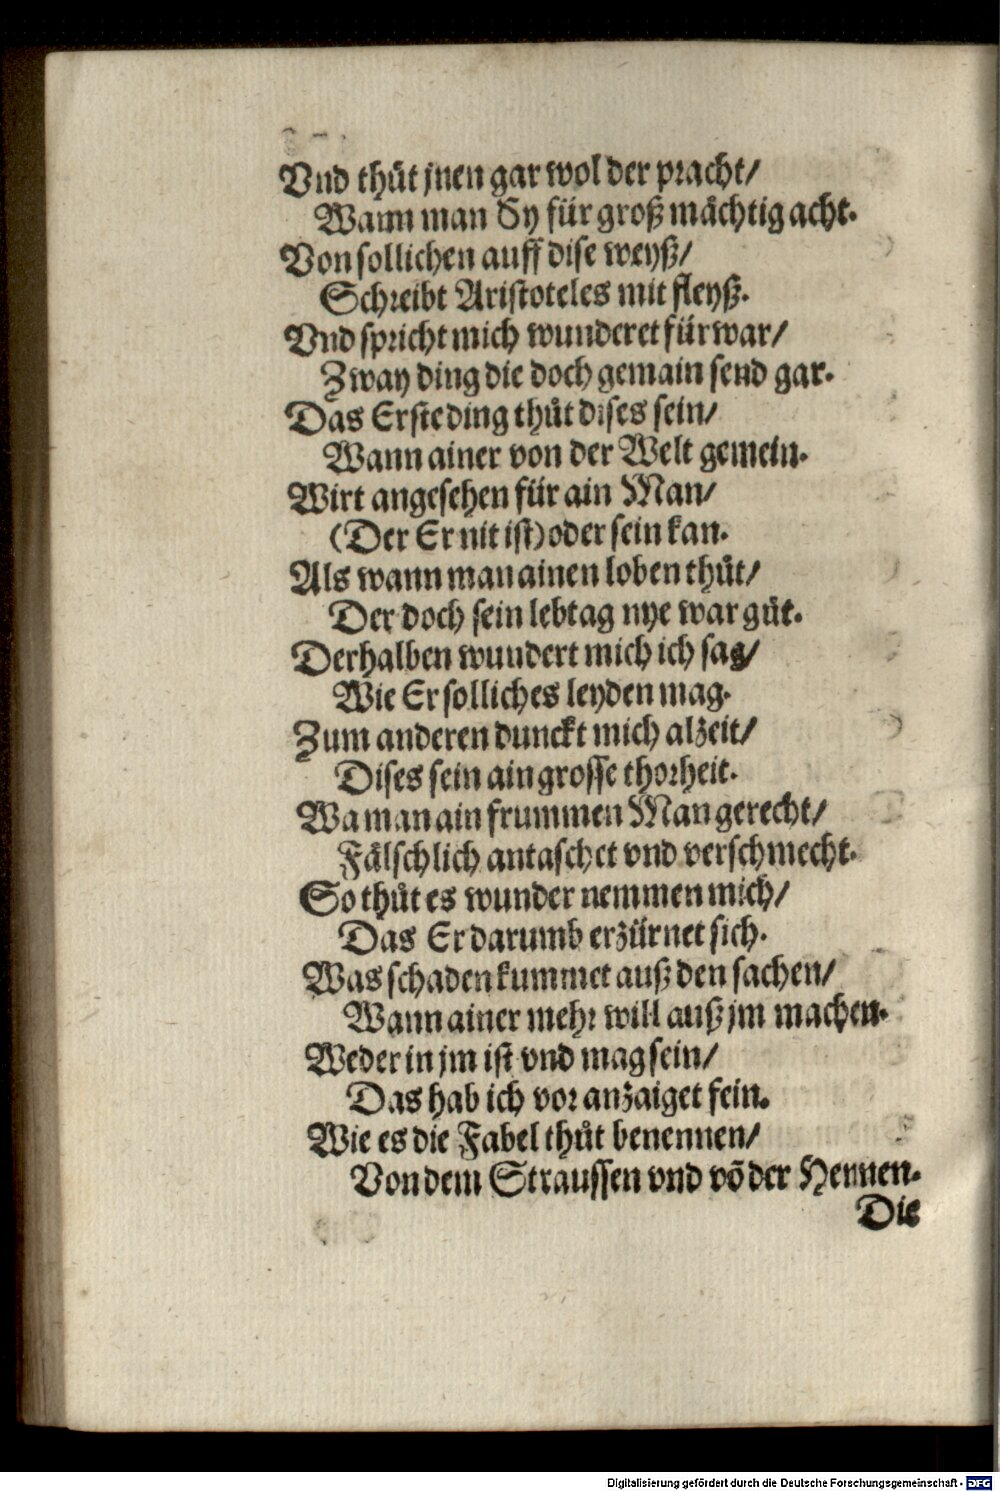 Vnd thůt jnen gar wol der pracht/
Wann man Sy für groß mächtig acht.
Von sollichen auff dise weyß/
Schreibt Aristoteles mit fleyß.
Vnd spricht mich wunderet fürwar/
Zway ding die doch gemain send gar.
Das Erste ding thůt dises sein/
Wann ainer von der Welt gemein.
Wirt angesehen für ain Man/
(Der Er nit ist) oder sein kan.
Als wann man ainen loben thůt/
Der doch sein lebtag nye war gůt.
Derhalben wundert mich ich sag/
Wie Er solliches leyden mag.
Zum anderen dunckt mich alzeit/
Dises sein ain grosse thorheit.
Wa man ain frummen Man gerecht/
Fälschlich antaschet vnd verschmecht.
So thůt es wunder nemmen mich/
Das Er darumb erzürnet sich.
Was schaden kummet auß den sachen/
Wann ainer mehr will auß jm machen.
Weder in jm ist vnd mag sein/
Das hab ich vor anzaiget fein.
Wie es die Fabel thůt benennen/
Von dem Straussen vnd võ der Hennen.
Die
Digitalisierung gefördert durch die Deutsche Forschungsgemeinschaft - DFG